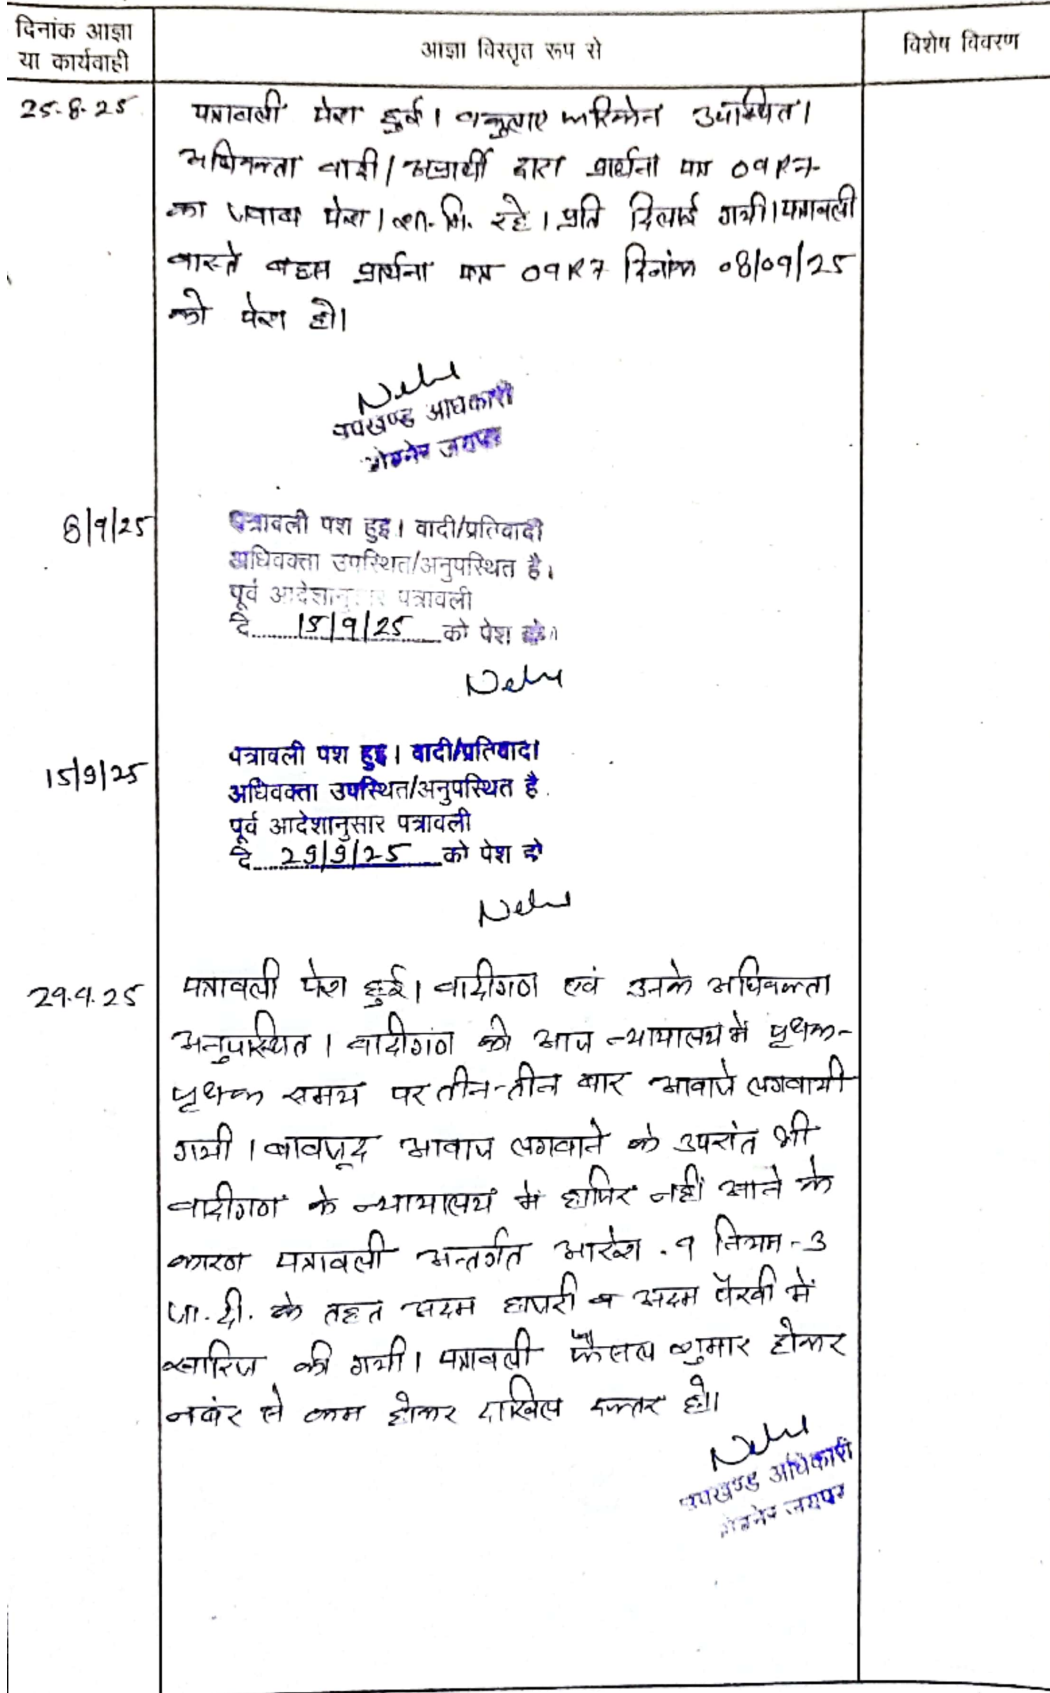 दिनांक आज्ञा
या कार्यवाही
आज्ञा विस्तृत रूप से
विशेष विवरण
25.8.25
पत्रावली पेश हुई। वकुलाए फरिकेन उपस्थित।
अधिवक्ता वादी/अप्रार्थी द्वारा प्रार्थना पत्र 09R7
का जवाब पेश। शा.मि. रहे। प्रति दिलाई गयी। पत्रावली
वास्ते बहस प्रार्थना पत्र 09R7 दिनांक 08/09/25
को पेश हो।
उपखण्ड अधिकारी
8/9/25
पत्रावली पेश हुई। वादी/प्रतिवादी
अधिवक्ता उपस्थित/अनुपस्थित है।
पूर्व आदेशानुसार पत्रावली
दि 15/9/25 को पेश हो।
15/9/25
पत्रावली पेश हुई। वादी/प्रतिवादी
अधिवक्ता उपस्थित/अनुपस्थित है.
पूर्व आदेशानुसार पत्रावली
दि 29/9/25 को पेश हो
29.9.25
पत्रावली पेश हुई। वादीगण एवं उनके अधिवक्ता
अनुपस्थित। वादीगण को आज न्यायालय में पृथक-
पृथक समय पर तीन-तीन बार आवाजे लगवायी
गयी। बावजूद आवाज लगवाने के उपरांत भी
वादीगण के न्यायालय में हाजिर नहीं आने के
कारण पत्रावली अन्तर्गत आदेश-9 नियम-3
जा.दी. के तहत अदम हाजरी व अदम पैरवी में
खारिज की गयी। पत्रावली फैसल शुमार होकर
नबंर से कम होकर दाखिल दफ्तर हो।
उपखण्ड अधिकारी